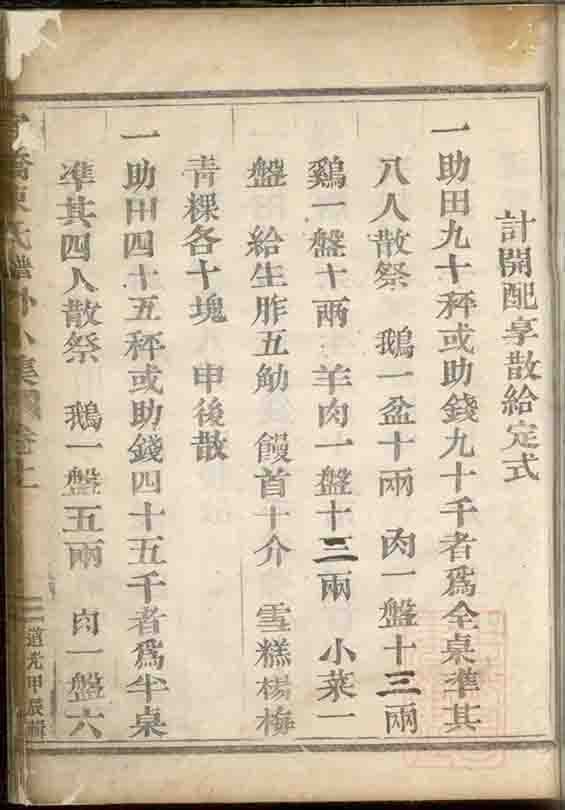 計開配享散給定式
一助田九十秤或助錢九十千者爲全桌準其
八人散祭 鵝一盆十兩 肉一盤十三兩
鷄一盤十兩 羊肉一盤十三兩 小菜一
盤 給生胙五觔 饅首十介 雪糕楊梅
青粿各十塊 申後散
一助田四十五秤或助錢四十五千者爲半桌
準其四人散祭 鵝一盤五兩 肉一盤六
橋陳氏譜外小集 卷上
道光甲辰輯